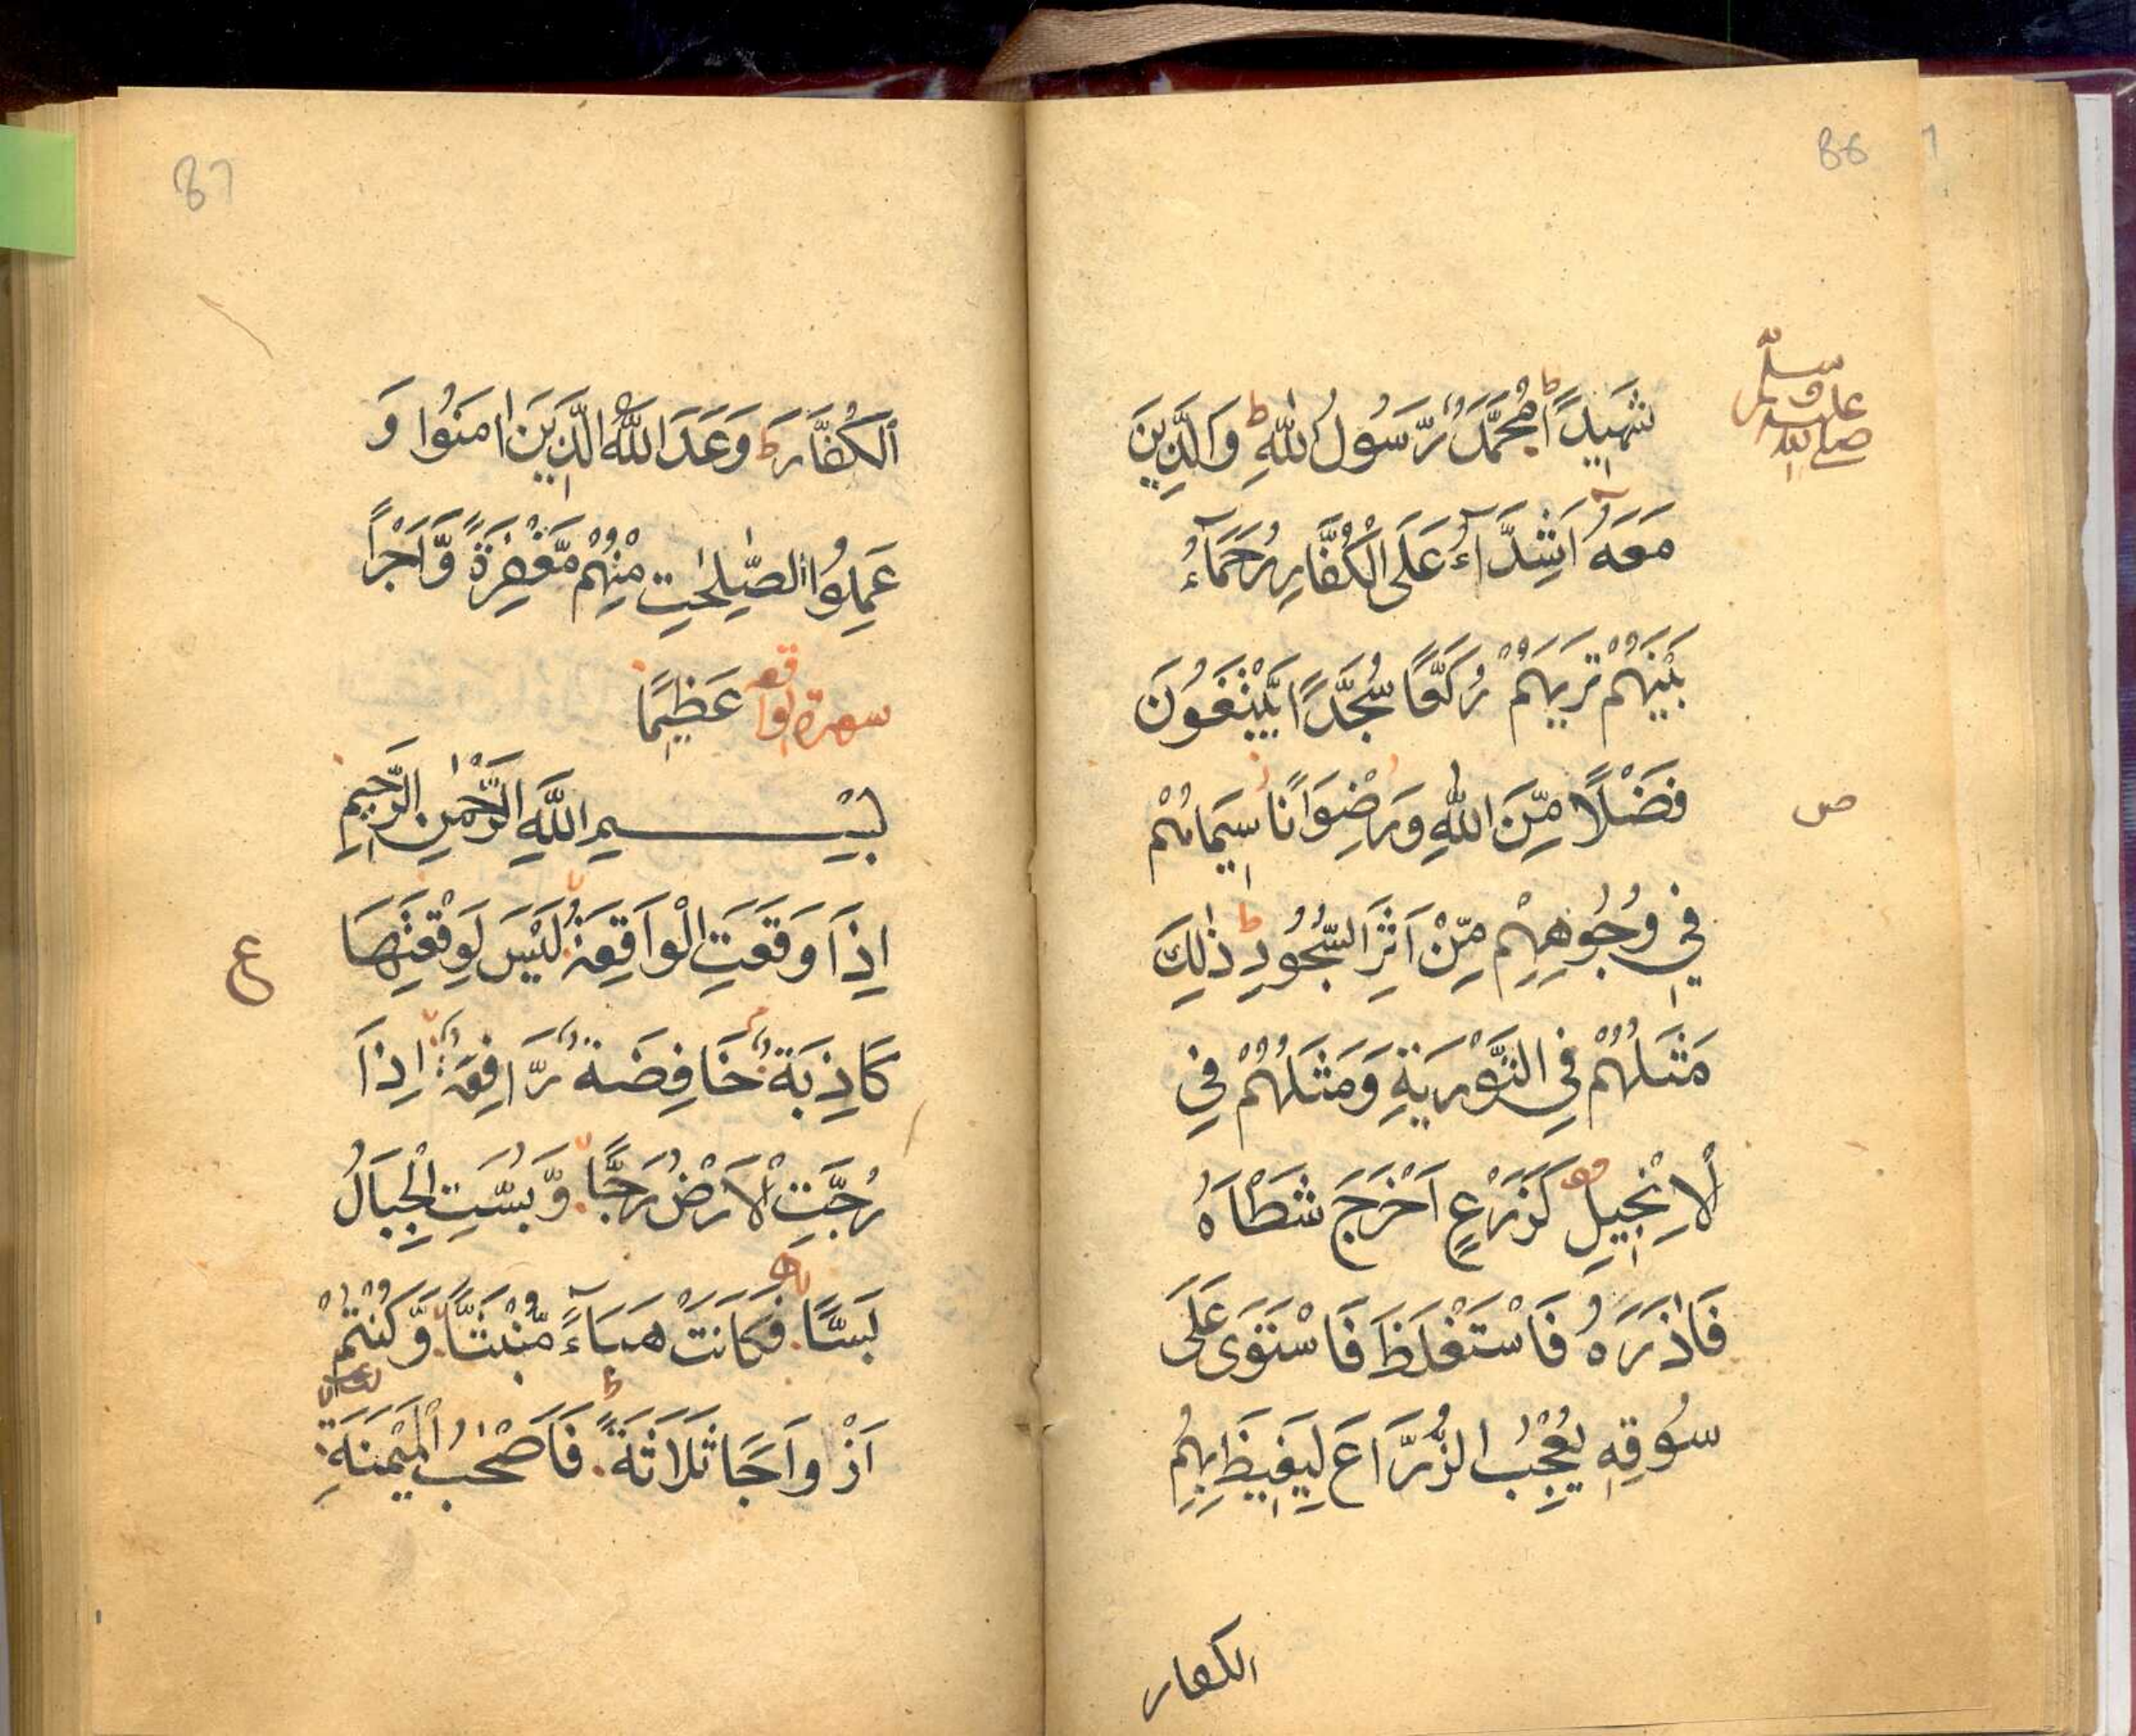 86
صلى الله عليه وسلم
شَهِيدًا ط مُحَمَّدٌ رَّسُولُ اللّٰهِ ط وَالَّذِينَ
مَعَهُ اَشِدَّآءُ عَلَى الْكُفَّارِ رُحَمَآءُ
بَيْنَهُمْ تَرٰىهُمْ رُكَّعًا سُجَّدًا يَّبْتَغُونَ
فَضْلًا مِّنَ اللّٰهِ وَرِضْوَانًا سِيمَاهُمْ
ص
فِي وُجُوهِهِمْ مِّنْ اَثَرِ السُّجُودِ ط ذٰلِكَ
مَثَلُهُمْ فِي التَّوْرٰيةِ وَمَثَلُهُمْ فِي
الْاِنْجِيلِ كَزَرْعٍ اَخْرَجَ شَطْاَهُ
فَاٰذَرَهُ فَاسْتَغْلَظَ فَاسْتَوَى عَلَى
سُوقِهِ يُعْجِبُ الزُّرَّاعَ لِيَغِيظَ بِهِمُ
الكفار
87
الْكُفَّارَ ط وَعَدَ اللّٰهُ الَّذِينَ اٰمَنُوا وَ
عَمِلُوا الصّٰلِحٰتِ مِنْهُمْ مَّغْفِرَةً وَّاَجْرًا
سورة الواقعه عَظِيمًا
بِسْمِ اللّٰهِ الرَّحْمٰنِ الرَّحِيمِ
اِذَا وَقَعَتِ الْوَاقِعَةُ لَيْسَ لِوَقْعَتِهَا
ع
كَاذِبَةٌ خَافِضَةٌ رَّافِعَةٌ اِذَا
رُجَّتِ الْاَرْضُ رَجًّا وَّبُسَّتِ الْجِبَالُ
بَسًّا فَكَانَتْ هَبَآءً مُّنْبَثًّا وَّكُنْتُمْ
اَزْوَاجًا ثَلَاثَةً ط فَاَصْحٰبُ الْمَيْمَنَةِ